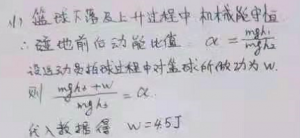 (1) 篮球下落及上升过程中 机械能守恒
∴ 碰地前后动能比值 α = mgh₁/mgh₂
设运动员拍球过程中对篮球所做功为W.
则 (mgh₃+W)/mgh₃ = α.
代入数据得 W=4.5J